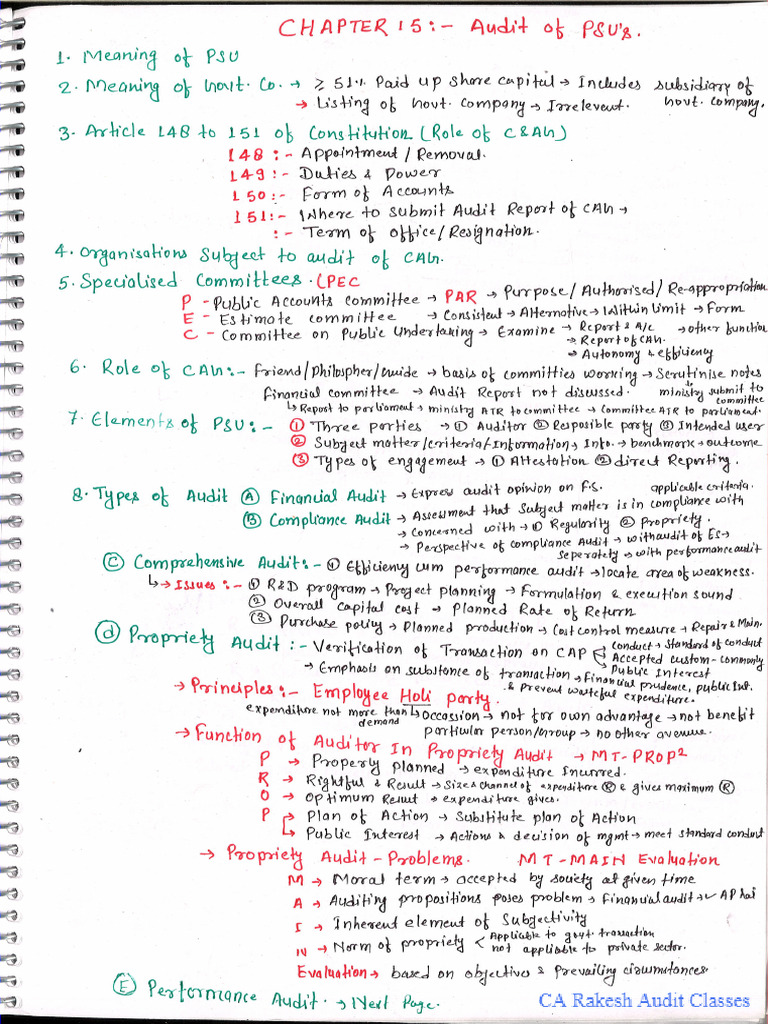 CHAPTER 15:- Audit of PSU's.
1. Meaning of PSU
2. Meaning of Govt. Co. → ≥ 51% Paid up share capital → Includes subsidiary of Govt. Company.
→ Listing of Govt. Company → Irrelevent.
3. Article 148 to 151 of Constitution (Role of C&AG)
148 :- Appointment / Removal.
149 :- Duties & Power
150 :- Form of Accounts
151 :- Where to submit Audit Report of CAG →
:- Term of office/Resignation.
4. Organisations Subject to audit of CAG.
5. Specialised Committees. (PEC
P - Public Accounts committee → PAR → Purpose / Authorised / Re-appropriation
E - Estimate committee → Consistent → Alternative → Within limit → Form
C - Committee on Public Undertaking → Examine → Report & A/c → other function
→ Report of CAG.
→ Autonomy & efficiency
6. Role of CAG:- Friend/Philospher/Guide → basis of committies working → Scrutinise notes
ministry submit to committee
Financial committee → Audit Report not discussed.
↳ Report to parliament → ministry ATR to committee → Committee ATR to parliament.
7. Elements of PSU:- ① Three parties → ① Auditor ② Resposible party ③ Intended user
② Subject matter/criteria/Information → Info. → benchmark → outcome
③ Types of engagement → ① Attestation ② direct Reporting.
8. Types of Audit Ⓐ Financial Audit → Express audit opinion on F.S.
Ⓑ Compliance Audit → Assessment that Subject matter is in compliance with applicable criteria.
→ Concerned with → ① Regularity ② Propriety.
→ Perspective of compliance Audit → with audit of FS →
seperately → with performance audit
Ⓒ Comprehensive Audit:- → ① Efficiency cum performance audit → locate area of weakness.
↳ → Issues :- ① R&D program → Project planning → Formulation & execution sound
② Overall Capital cost → Planned Rate of Return
③ Purchase policy → Planned production → Cost control measure → Repair & Main.
ⓓ Propriety Audit :- Verification of Transaction on CAP
Conduct → Standard of conduct
Accepted custom - commonly
Public Interest
→ Emphasis on substance of transaction → Financial prudence, public Int.
& Prevent wasteful expenditure.
→ Principles:- Employee Holi party.
expenditure not more than demand
↳ occassion → not for own advantage → not benefit
particular person/Group → no other avenue.
→ Function of Auditor In Propriety Audit → MT-PROP²
P → Properly planned → expenditure Incurred.
R → Rightful & Result → Size & channel of expenditure Ⓡ & gives maximum Ⓡ
O → Optimum Result → expenditure gives.
P → Plan of Action → Substitute plan of Action
↳ Public Interest → Actions & decision of mgmt → meet standard conduct
→ Propriety Audit - Problems. MT-MAIN Evaluation
M → Moral term → accepted by society at given time
A → Auditing propositions poses problem → Financial audit →
I → Inherent element of Subjectivity
N → Norm of propriety < Applicable to govt. transaction
not applicable to private sector.
Evaluation → based on objectives & Prevailing cirumtances
Ⓔ Performance Audit. → Next Page.
CA Rakesh Audit Classes